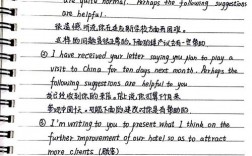 are quite normal. Perhaps the following suggestions
are helpful.
很遗憾, 听说你在适应新学校方面有困难,
这样的问题是很正常的, 下面的建议也许有一些帮助
④ I have received your letter saying you plan to play a
visit to China for ten days next month. Perhaps the
following suggestions are helpful to you
我已收到你的来信, 信上说你计划下个月来
中国十天, 下面的建议对你是有帮助的
⑤ I'm writing to you to present what I think on the
further improvement of our hotel so as to attract
more clients (顾客)